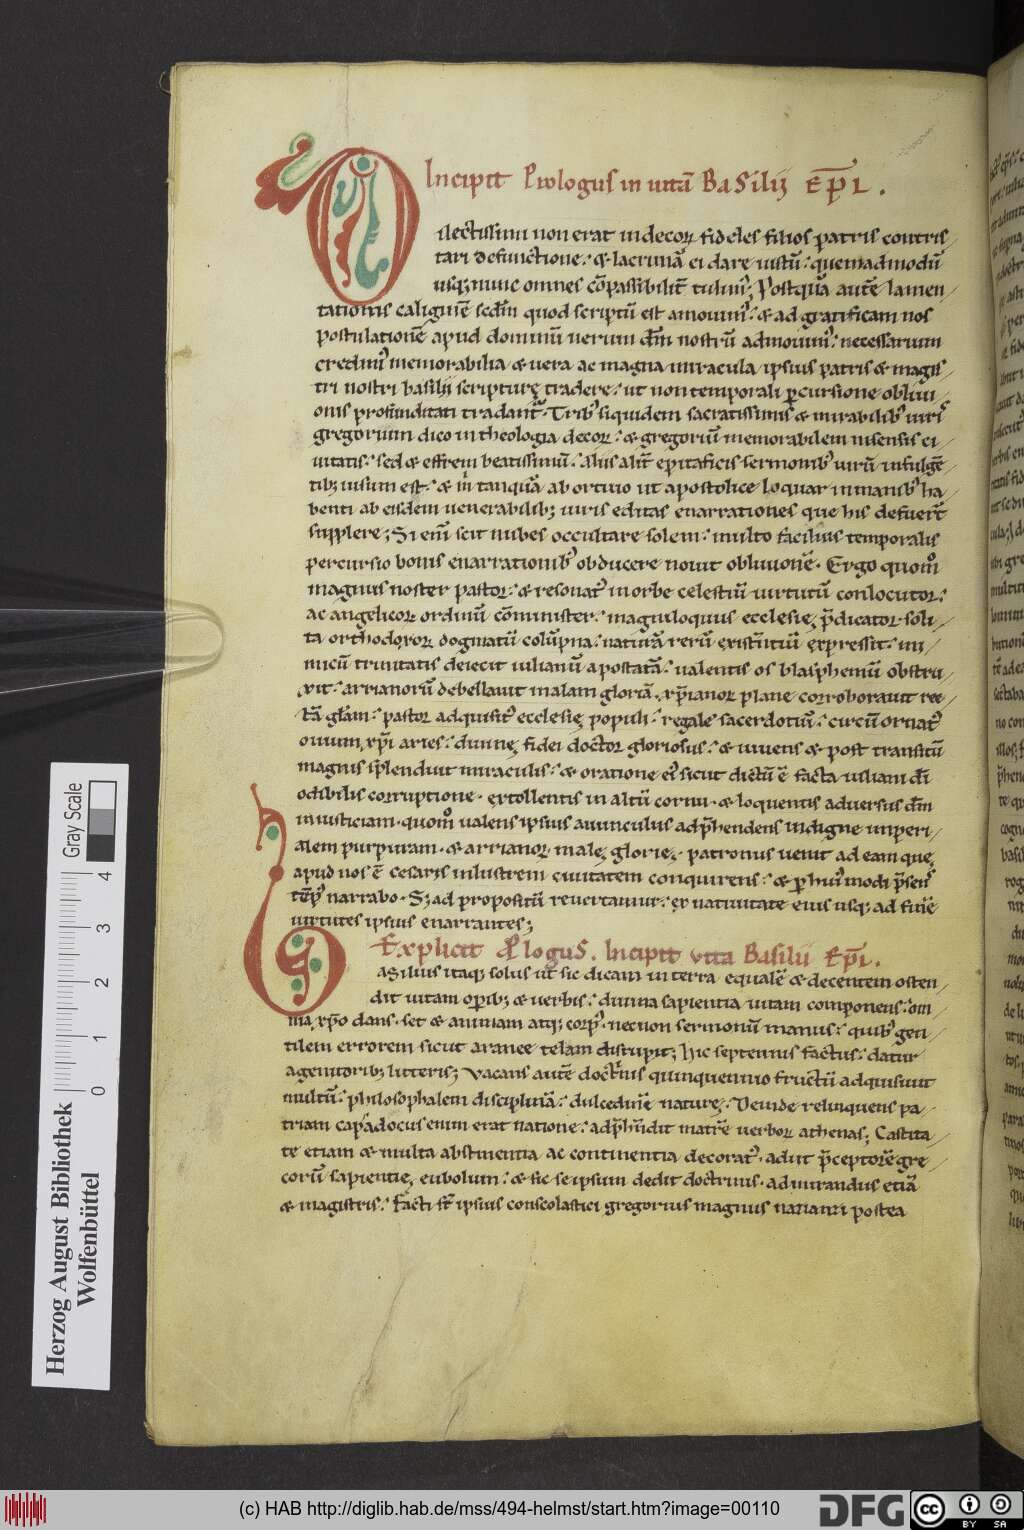 Incipit Prologus in uitā Basilij Ep̄i.
Dilectissimi non erat indecorꝝ fideles filios patris contris
tari defunctione: & lacrimā ei dare iustū: quemadmodū
usq; nunc omnes cōpassibilit̄ tulim᷒; Postquā autē lamen
tationis caliginē sedm̄ quod scriptū est amouim᷒: & ad gratificam nos
postulationē apud dominum uerum dm̄ nostrū admouim᷒: necessarium
credim᷒ memorabilia & uera ac magna miracula ipsius patris & magis
tri nostri basilij scripturę tradere: ut non temporali ꝑcursione obliui
onis profunditati tradant᷒. Trib᷒ siquidem sacratissimis & mirabilib᷒ uiris
gregorium dico in theologia decorꝝ: & gregoriū memorabilem nisensis ci
uitatis: sed & effrem beatissimū: Aliis alit̄ epitaficis sermonib᷒ uirū infulgē
tib; uisum est: & m tanquā ab ortiuo ut apostolice loquar in manib᷒ ha
benti ab eisdem uenerabilib; uiris editas enarrationes que his defuert̄
supplere; Si enī scit nubes occultare solem: multo facilius temporalis
percursio bonis enarrationib᷒ obducere nouit obliuionē. Ergo quom̊
magnus noster pastor: & resonat᷒ in orbe celestiū uirtutū conlocutor:
ac angelicorꝝ ordinū cōminister: magniloquus ecclesię p̄dicator soli
ta orthodoxorꝝ dogmatū colūpna: naturā rerū existentiū expressit: ini
micū trinitatis deiecit iulianū apostatā: ualentis os blasphemū obstru
xit: arrianorū debellauit malam gloriā. xp̄ianorꝝ plane corroborauit rec
tā glām: pastor adquisit᷒ ecclesię populi: regale sacerdotiū: circū ornat᷒
ouium xp̄i aries: diuinę fidei doctor gloriosus: & uiuens & post transitū
magnis splenduit miraculis: & oratione ei᷒ sicut dictū ē facta iuliani dī
odibilis corruptione. extollentis in altū cornu. & loquentis aduersus dm̄
iniusticiam. quom̊ ualens ipsius auunculus adp̄hendens indigne imperi
alem purpuram. & arrianorꝝ malę glorię. patronus uenit ad eam que
apud nos ē cesaris inlustrem ciuitatem conquirens: & ꝑ hui᷒modi p̄sens
tēp᷒ narrabo. S; ad propositū reuertamur: ex natiuitate eius usq; ad finē
uirtutes ipsius enarrantes;
Explicit P̄logus. Incipit vita Basilii Ep̄i.
Basilius itaq; solus ut sic dicam in terra equalē & decentem osten
dit uitam operib; & uerbis: diuina sapientia uitam componens: om
nia xp̄o dans. set & animam atq; corp᷒. necnon sermonū manus: quib᷒ gen
tilem errorem sicut aranee telam disrupit; Hic septennis factus: datur
agenitorib; litteris; Vacans autē doctrinis quinquennio fructū adquisiuit
multū: philosophalem disciplinā: dulcedinē naturę. Deinde relinquens pa
triam capadocus enim erat natione: adp̄hendit matrē uerborꝝ athenas; Castita
te etiam & multa abstinentia ac continentia decorat᷒. adiit p̄ceptorē gre
corū sapientię eubolum: & sic se ipsum dedit doctrinis. admirandus etiā
& magistris: Facti st̄ ipsius conscolastici gregorius magnus nazianzi postea
Gray Scale
0 1 2 3 4
Herzog August Bibliothek
Wolfenbüttel
(c) HAB http://diglib.hab.de/mss/494-helmst/start.htm?image=00110
DFG
cc BY SA